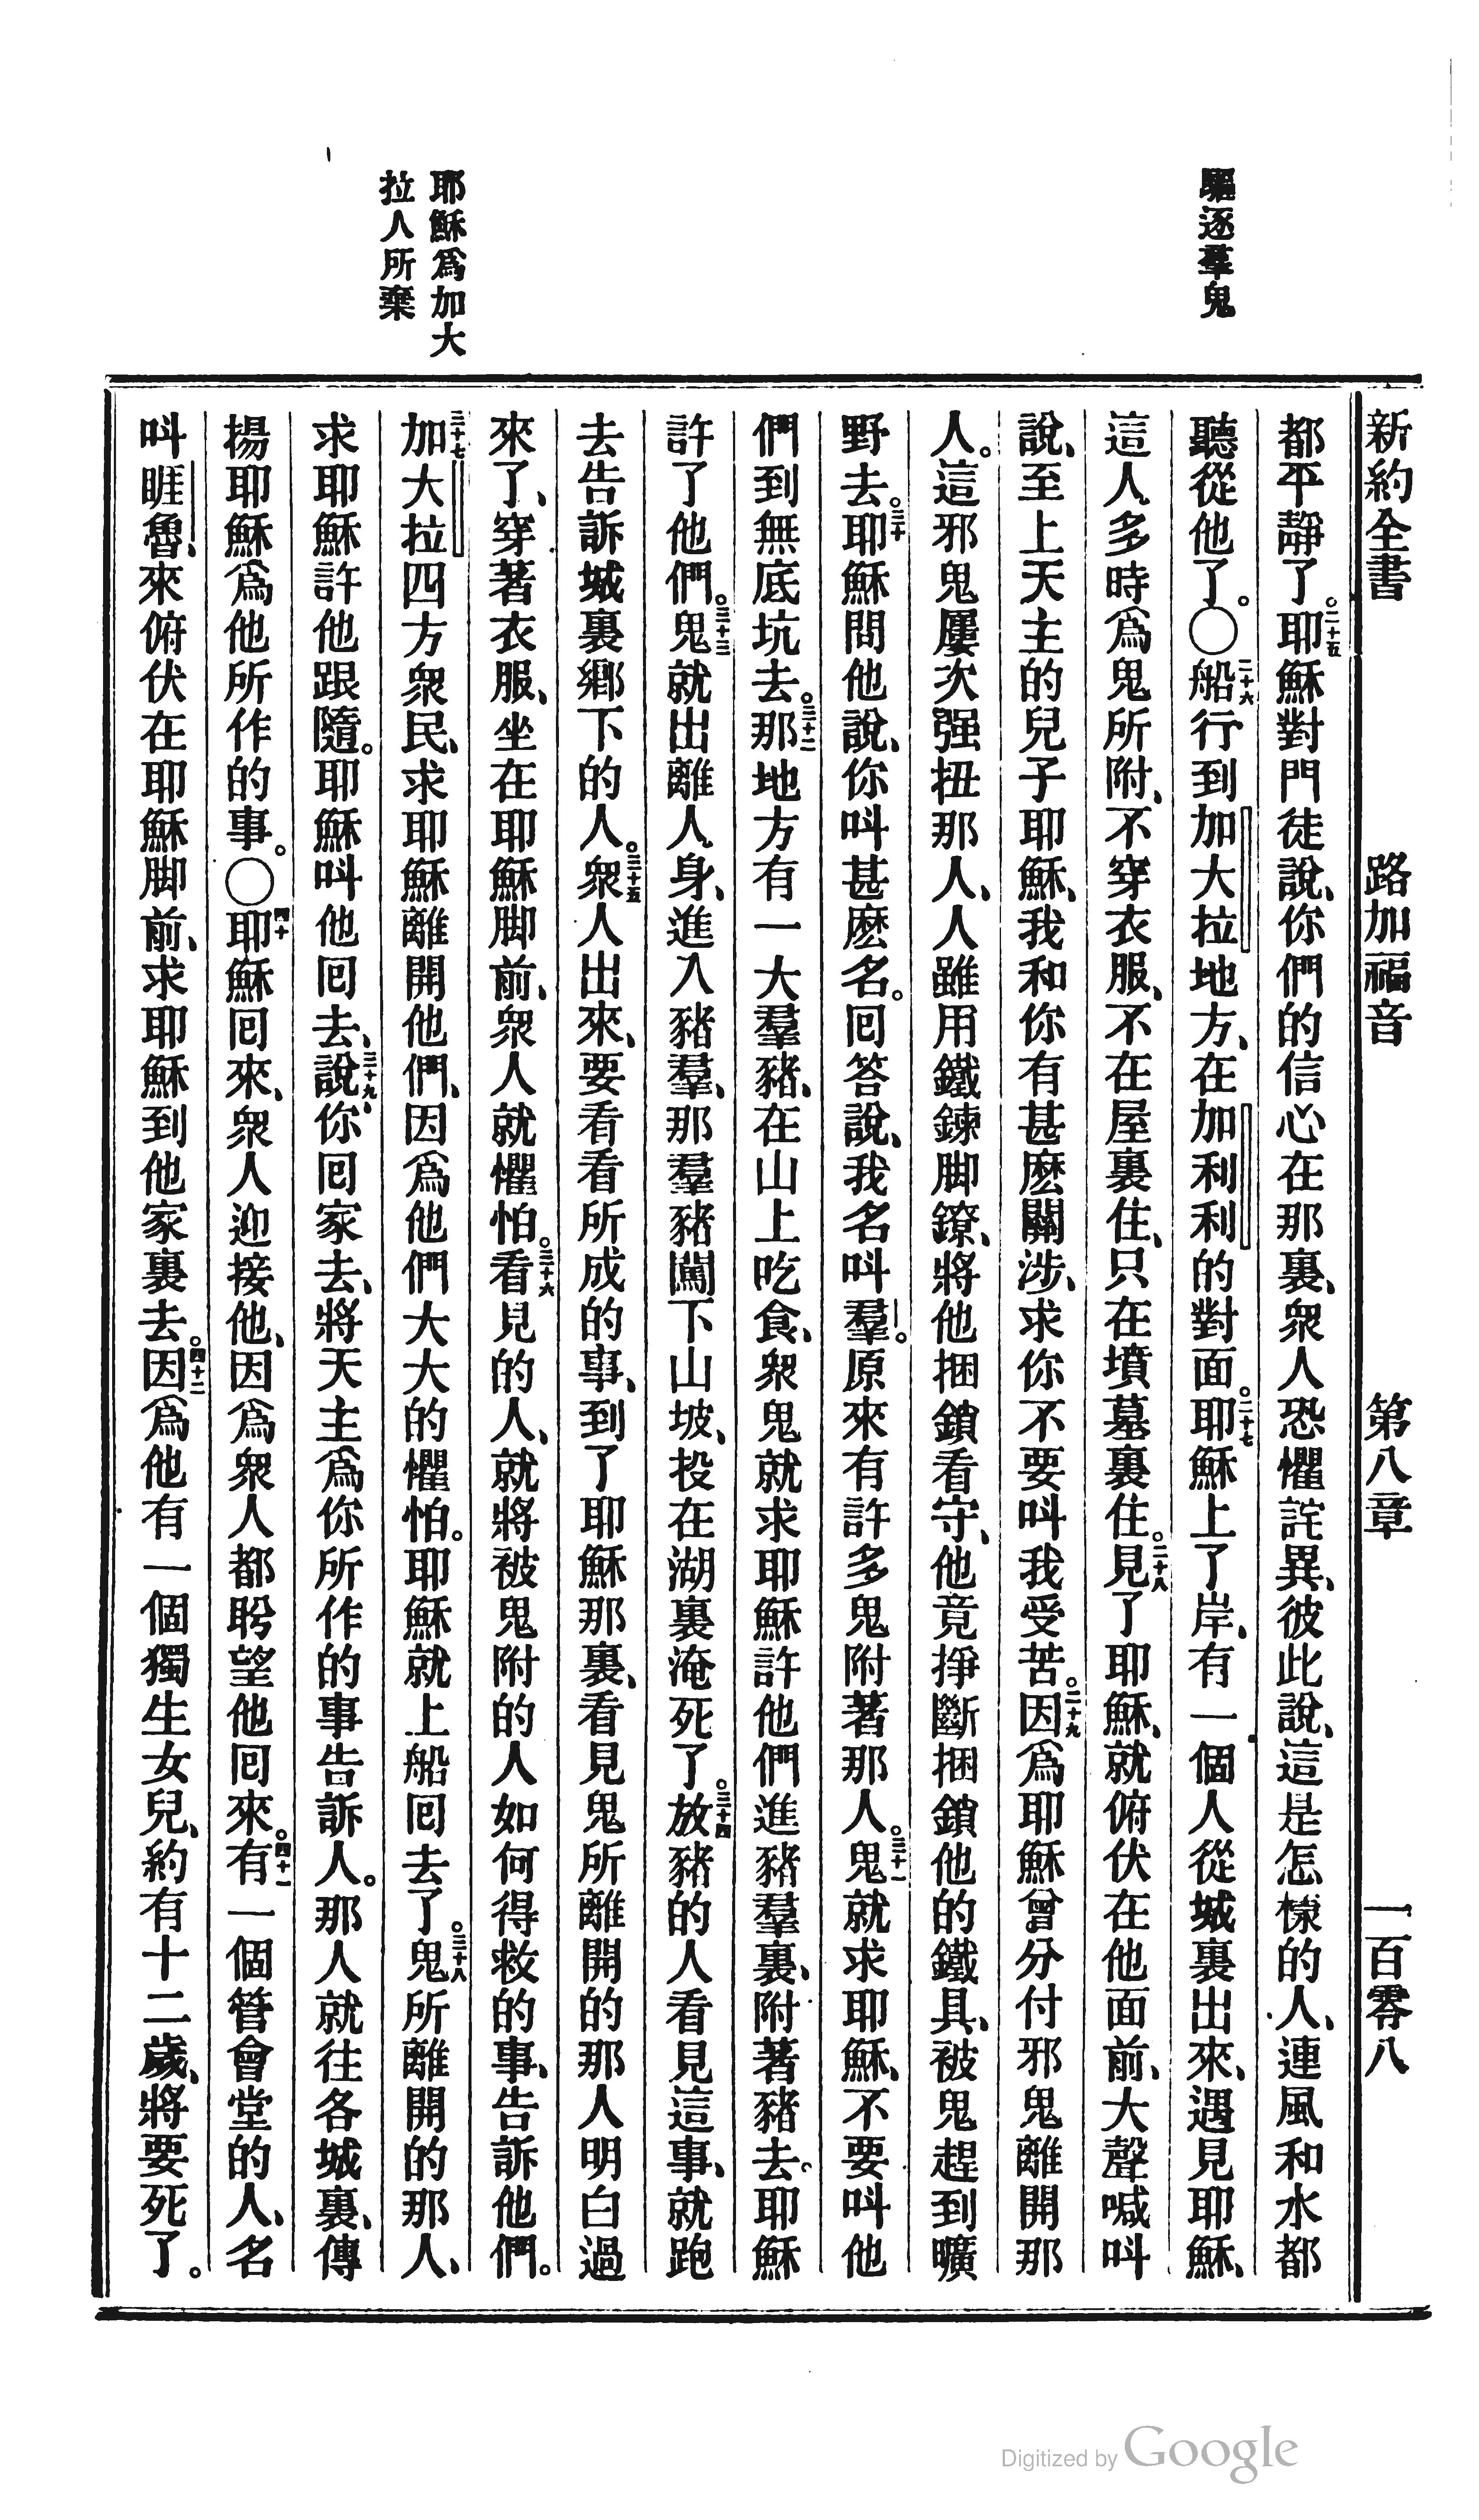 驅逐羣鬼
耶穌爲加大
拉人所棄
新約全書 路加福音 第八章 一百零八
都平靜了。二十五耶穌對門徒說、你們的信心在那裏、衆人恐懼詫異、彼此說、這是怎樣的人、連風和水都
聽從他了。〇二十六船行到加大拉地方、在加利利的對面。二十七耶穌上了岸、有一個人從城裏出來、遇見耶穌、
這人多時爲鬼所附、不穿衣服、不在屋裏住、只在墳墓裏住。二十八見了耶穌、就俯伏在他面前、大聲喊叫
說、至上天主的兒子耶穌、我和你有甚麽關涉、求你不要叫我受苦。二十九因爲耶穌曾分付邪鬼離開那
人。這邪鬼屢次强扭那人、人雖用鐵鍊脚鐐、將他捆鎖看守、他竟掙斷捆鎖他的鐵具、被鬼趕到曠
野去。三十耶穌問他說、你叫甚麽名。囘答說、我名叫羣。原來有許多鬼附著那人。三十一鬼就求耶穌、不要叫他
們到無底坑去。三十二那地方有一大羣豬、在山上吃食、衆鬼就求耶穌許他們進豬羣裏、附著豬去。耶穌
許了他們。三十三鬼就出離人身、進入豬羣、那羣豬闖下山坡、投在湖裏淹死了。三十四放豬的人看見這事、就跑
去告訴城裏鄉下的人。三十五衆人出來、要看看所成的事、到了耶穌那裏、看見鬼所離開的那人明白過
來了、穿著衣服、坐在耶穌脚前、衆人就懼怕。三十六看見的人、就將被鬼附的人如何得救的事、告訴他們。
三十七加大拉四方衆民、求耶穌離開他們、因爲他們大大的懼怕。耶穌就上船囘去了。三十八鬼所離開的那人、
求耶穌許他跟隨。耶穌叫他囘去、三十九說、你囘家去、將天主爲你所作的事告訴人。那人就往各城裏、傳
揚耶穌爲他所作的事。〇四十耶穌囘來、衆人迎接他、因爲衆人都盼望他囘來。四十一有一個管會堂的人、名
叫睚魯、來俯伏在耶穌脚前、求耶穌到他家裏去。四十二因爲他有一個獨生女兒、約有十二歲、將要死了。
Digitized by Google